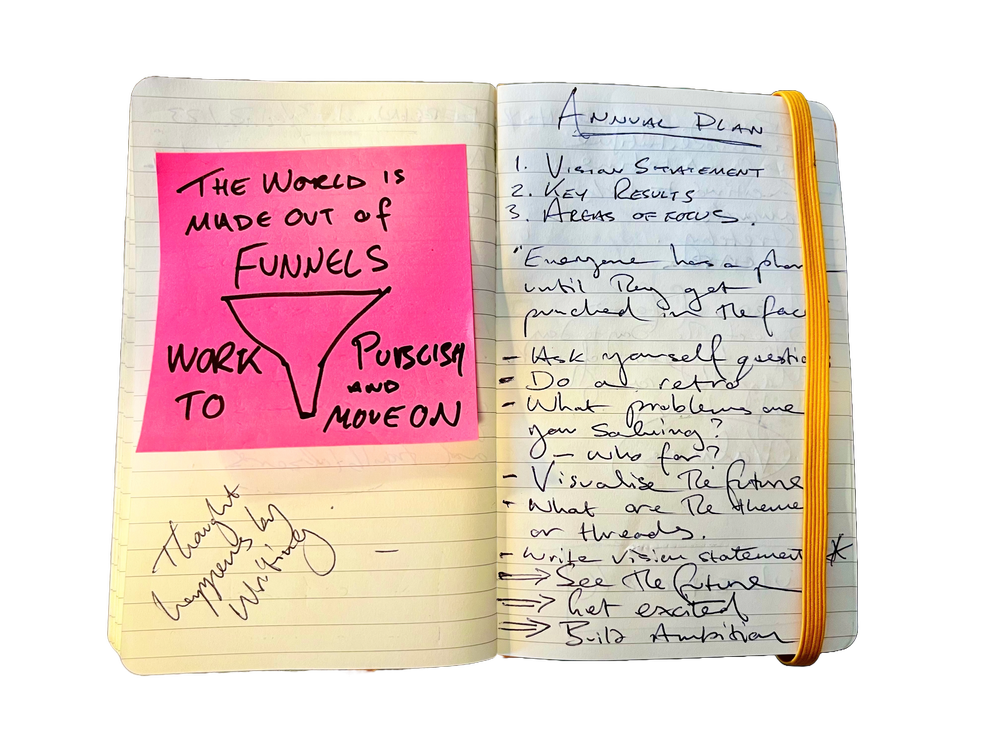 THE WORLD IS
MADE OUT OF
FUNNELS
WORK
TO
PUBLISH
AND
MOVE ON
Thought
happens by
Writing
ANNUAL PLAN
1. VISION STATEMENT
2. KEY RESULTS
3. AREAS OF FOCUS.
"Everyone has a plan
until they get
punched in the fac
- Ask yourself questio
- Do a retro
- What problems are
you solving?
- who for?
- Visualise the future
- What are the theme
or threads.
- Write vision statement *
⇒ See the future
⇒ Get excited
⇒ Build Ambition